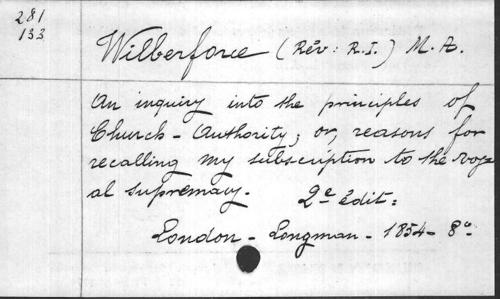 281
133
Wilberforce (Rev: R.I.) M.A.
An inquiry into the principles of
Church-Authority; or, reasons for
recalling my subscription to the roy-
al supremacy. 2e édit:
London - Longman - 1854 - 8o